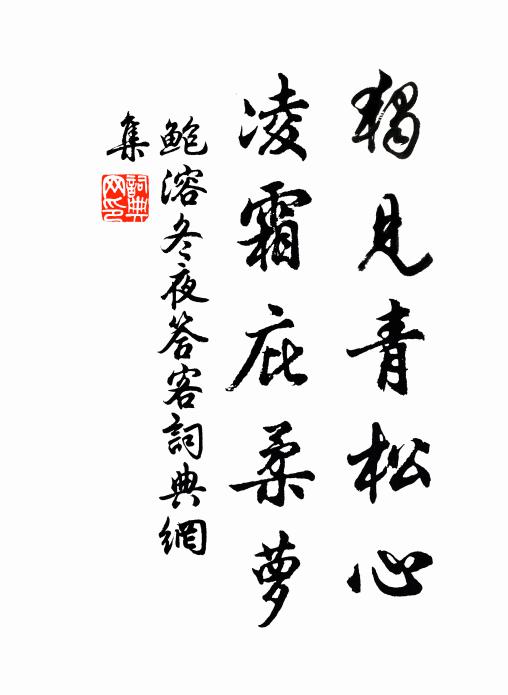 獨見青松心
凌霜庇柔蘿
鮑溶冬夜答客詞典網
集
詞典
网印